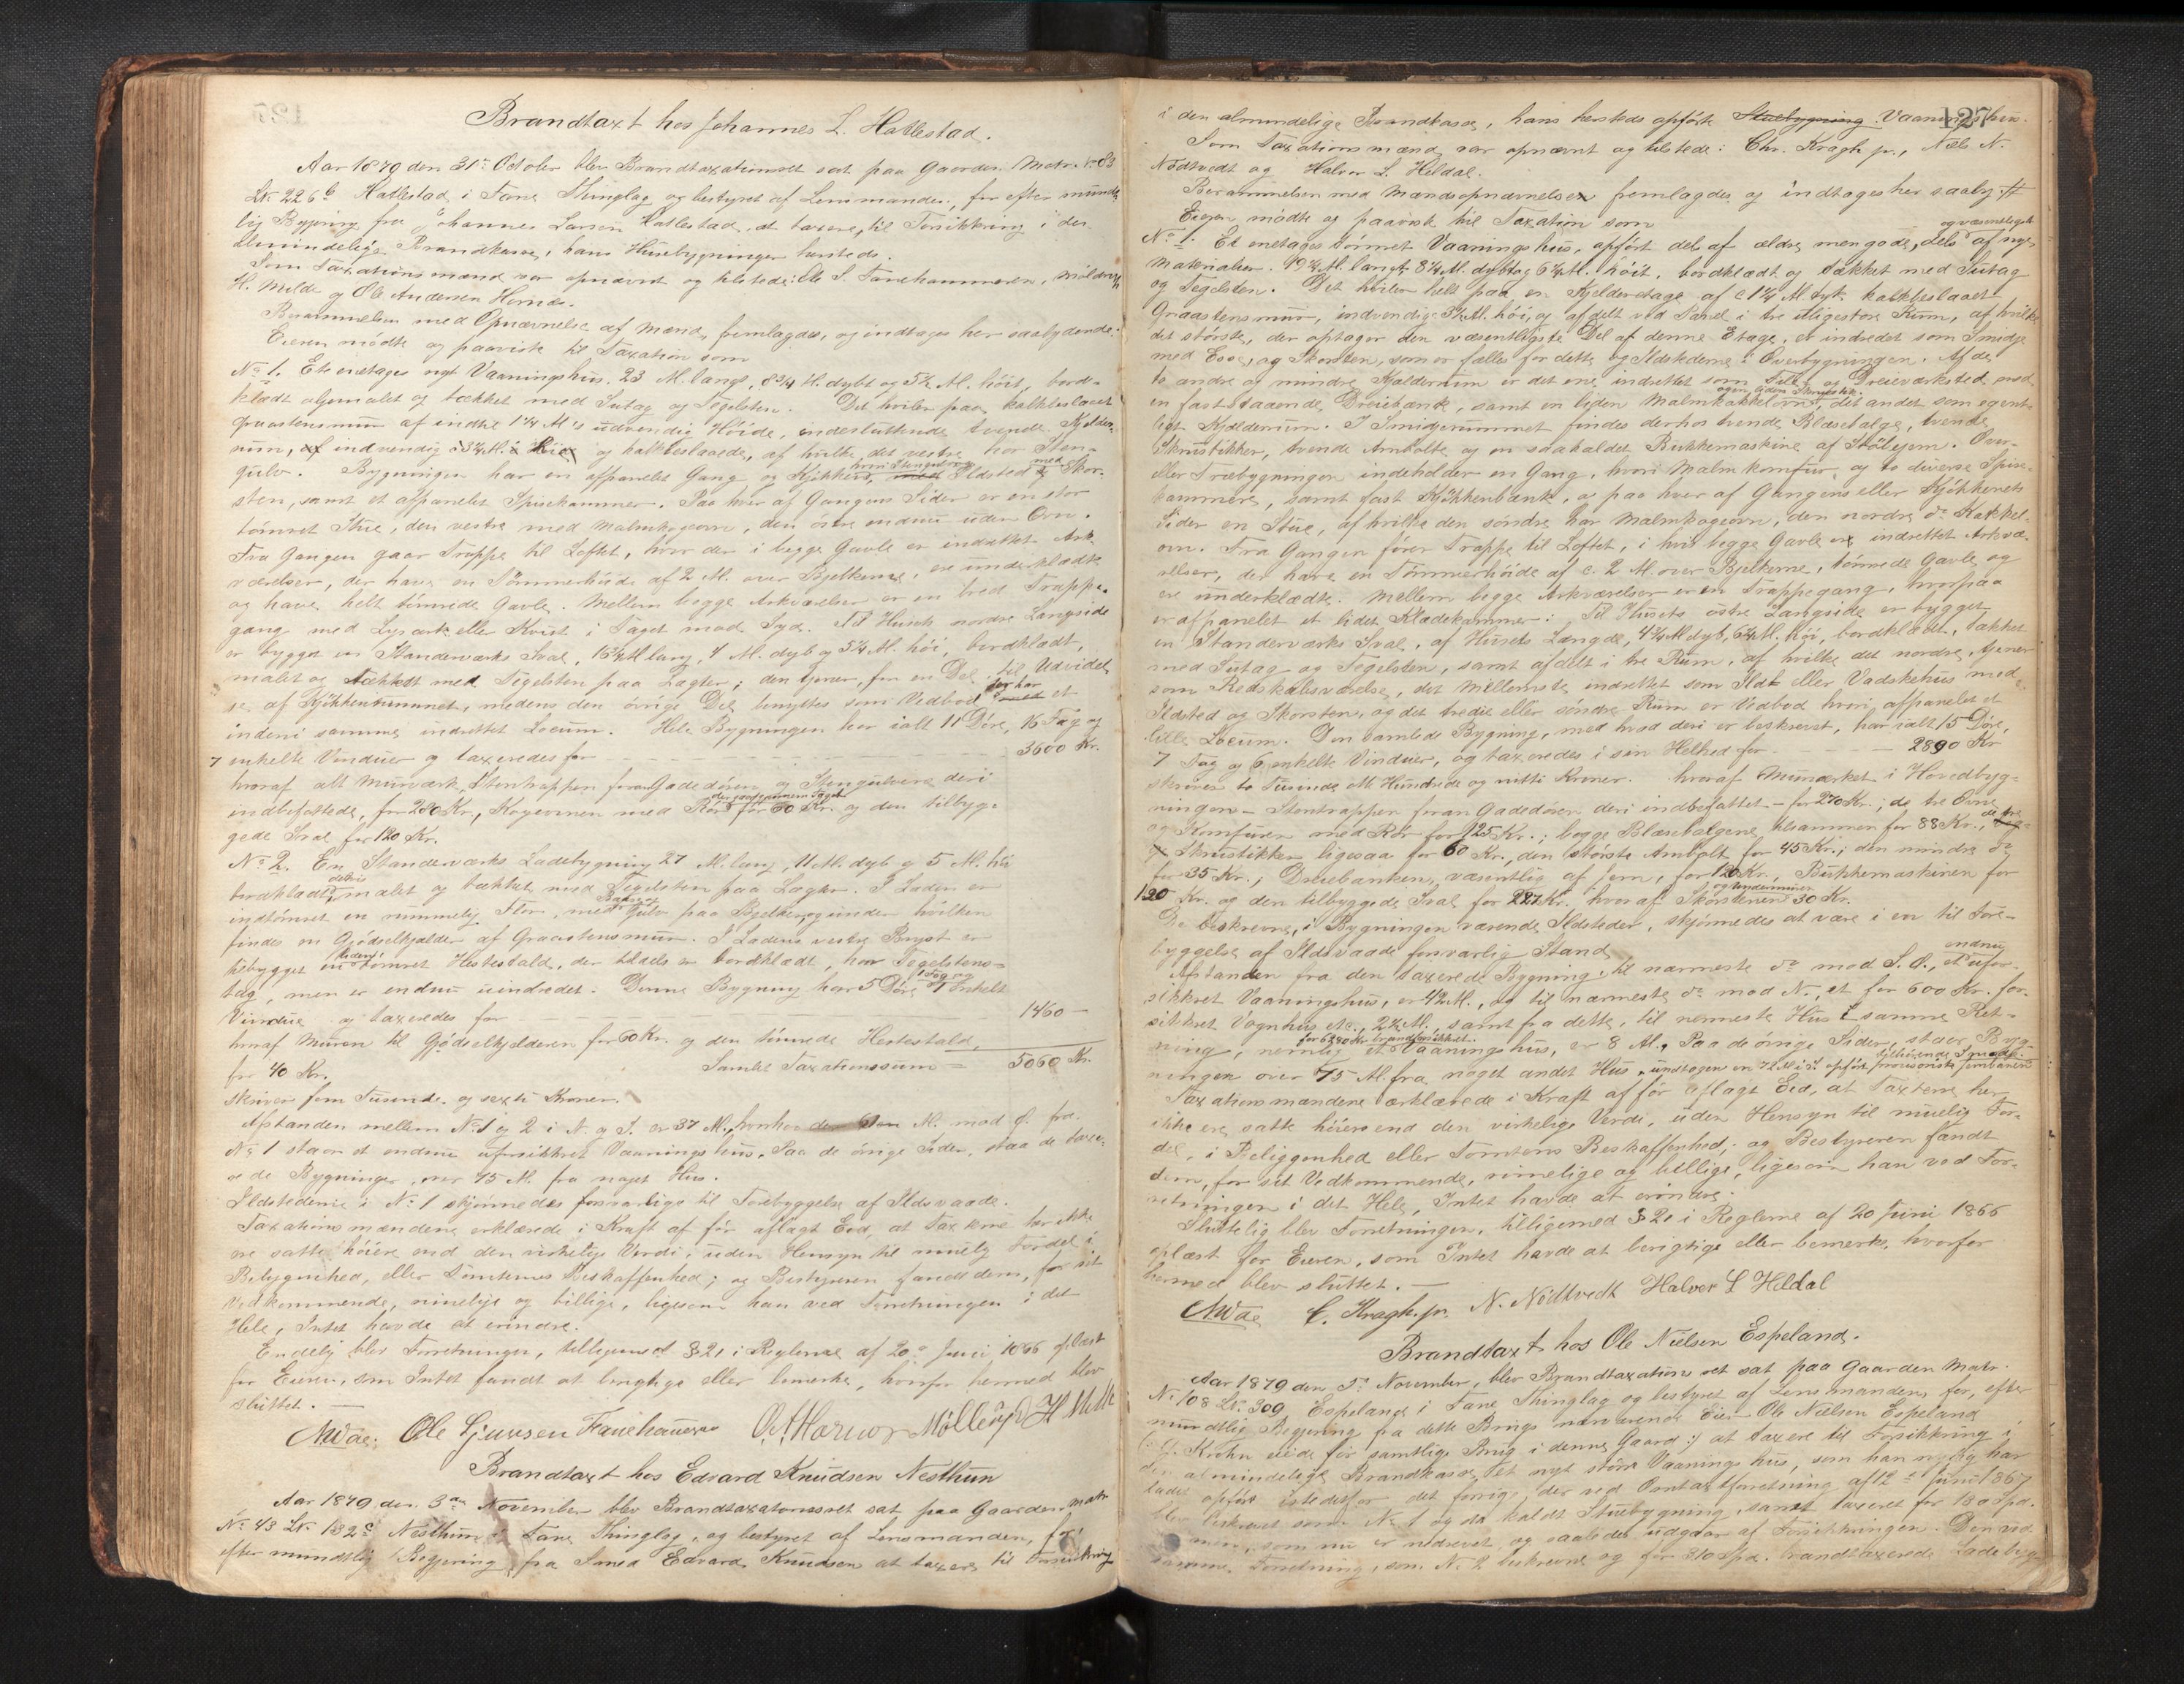 Brandtaxt hos Johannes L. Hatlestad.
Aar 1879 den 31te October blev Brandtaxationsret sat paa Gaarden Matr. No 83
LNr. 226b Hatlestad i Fane Thinglag og bestyret af Lensmanden, for efter mundt-
lig Begjering fra Johannes Larsen Hatlestad, at taxere, til Forsikkring i den
almindelige Brandkasse, hans Husebygninger hersteds.
Som Taxationsmænd var opnævnt og tilstede: Ole S. Fanehammeren, Mölder
H. Milde og Ole Andersen Hernæs.
Berammelsen med Opnævnelse af Mænd, fremlagdes, og indtages her saalydende:
Eieren mödte og paaviste til Taxation som
No 1. Et enetages nyt Vaaningshus, 23 Al. langt, 8 3/4 Al. dybt og 5 1/2 Al. höit, bord-
klædt oljemalet og tækket med Sutag og Tegelsten. Det hviler paa kalkbeslaaet
Graastensmur af indtil 1 1/4 Al's udvendig Höide, indesluttende tvende Kjelder-
rum, indvendig 3 1/4 Al. og kalkbeslaaede, af hvilke det vestre har Sten-
gulv. Bygningen har en afpanelet Gang og Kjökken, hvori Stengulv med Ildsted & Skor-
sten, samt et afpanelet Spisekammer. Paa hver af Gangens Sider er en stor
tömret Stue, den vestre med Malmkogeovn, den östre endnu uden Ovn.
Fra Gangen gaar Trappe til Loftet, hvor der i begge Gavle er indrettet Ark-
værelser, der have en Tömmerhöide af 2 Al. over Bjelkerne, ere underklædte
og have helt tömrede Gavle. Mellem begge Arkværelser er en bred Trappe-
gang med Lysark eller Kvist i Taget mod Syd. Til Husets nordre Langside
er bygget en Standerværks Sval, 15 1/4 Al lang, 4 Al. dyb og 5 1/4 Al. höi, bordklædt,
malet og tækket med Tegelsten paa Lægter; den tjener, for en Del, til Udvidel-
se af Kjökkenrummet, medens den övrige Del benyttes som Vedbod, der har et
indeni samme indrettet Locum. Hele Bygningen har ialt 11 Döre, 16 Fag og
7 enkelte Vinduer og taxeredes for 3600 Kr.
hvoraf alt Murværk, Stentrappen foran Gadedören og Stengulvene deri
indbefattede, for 280 Kr., Kogeovnen med Rör der gaar gjennem Taget for 60 Kr. og den tilbyg-
gede Sval for 120 Kr.
No 2. En Standerværks Ladebygning 27 Al. lang, 11 Al. dyb og 5 Al. höi
bordklædt, delvis malet og tækket med Tegelsten paa Lægter. I Laden er
indtömret en rummelig Flor, med Gulv paa Bjelker og under hvilken
findes en Gjödselkjelder af Graastensmur. I Ladens vestre Bryst er
tilbygget en liden tömret Hestestald, der tildels er bordklædt, har Tegelstens-
tag, men er endnu uindredet. Denne Bygning har 5 Döre 1 Fag og 1 enkelt
Vindue og taxeredes for 1460 —
hvoraf Muren til Gjödselkjelderen for 60 Kr. og den tömrede Hestestald
for 40 Kr. Samlet Taxationssum = 5060 Kr.
skriver fem Tusende og sexti Kroner.
Afstanden mellem No 1 og 2 i N. og S. er 37 Al., hvorhos Al. mod Ö. fra
No 1 staar et endnu uforsikkret Vaaningshus. Paa de övrige Sider, staa de taxe-
rede Bygninger, over 75 Al. fra noget Hus.
Ildstederne i No 1 skjönnedes forsvarlige til Forebyggelse af Ildsvaade.
Taxationsmændene erklærede i Kraft af för aflagt Eed, at Taxterne her ikke
ere satte höiere end den virkelige Værdi, uden Hensyn til muelig Fordel i
Beliggenhed, eller Tomternes Beskaffenhed; og Bestyreren fandt dem, for sit
Vedkommende, rimelige og billige, ligesom han ved Forretningen i det
Hele, Intet havde at erindre.
Endelig blev Forretningen, tilligemed § 21 i Reglerne af 20de Juni 1866 oplæst
for Eieren, som Intet fandt at berigtige eller bemerke, hvorfor hermed blev
sluttet. —
Ole Sjursen Fanehammer
Brandtaxt hos Edvard Knudsen Nesthun
Aar 1879 den 3die November blev Brandtaxationsret sat paa Gaarden Matr
No 43 LNr. 132c Nesthun i Fane Thinglag, og bestyret af Lensmanden, for,
efter mundtlig Begjering fra Smed Edvard Knudsen at taxere til Forsikkring
127
i den almindelige Brandkasse, hans hersteds opförte Stuebygning Vaaningshus.
Som Taxationsmænd var opnævnt og tilstede: Chr. Kragh jr., Nils N.
Nödtvedt og Halvor L. Heldal.
Berammelsen med Mandsopnævnelsen fremlagdes og indtages her saalyd.
Eieren mödte og paaviste til Taxation som
No 1. Et enetages tömret Vaaningshus, opfört dels af ældre men gode, dels og væsentligst af nye
Materialier. 19 1/4 Al. langt, 8 1/4 Al. dybt og 6 1/4 Al. höit, bordklædt og tækket med Sutag
og Tegelsten. Det hviler helt paa en Kjelderetage af c 1 1/4 Al tyk kalkbeslaaet
Graastensmur, indvendig 3 1/4 Al. höi, og afdelt ved Panel i tre uligestore Rum, af hvilke
det störste, der optager den væsentligste Del af denne Etage, er indredet som Smidje
med Esse, og Skorsten, som er fælles for dette og Ildstederne i Overbygningen. Af de
to andre og mindre Kjelderrum er det ene indrettet som File- og Dreieværksted med
en faststaaende Dreiebænk, samt en liden Malmkakkelovn, det andet som egent-
ligt Kjelderrum. I Smidjerummet findes derhos tvende Blæsebælge, tvende
Skruestikker, tvende Ambolte og en saakaldet Bukkemaskine af Stöbejern. Over-
eller Træbygningen indeholder en Gang, hvori Malmkomfur, og to diverse Spise-
kammere, samt fast Kjökkenbænk, og paa hver af Gangens eller Kjökkenets
Sider en Stue, af hvilke den söndre har Malmkogeovn, den nordre do Kakkel-
ovn. Fra Gangen förer Trappe til Loftet, i hvis begge Gavle er indrettet Arkvæ-
relser, der have en Tömmerhöide af c. 2 Al. over Bjelkerne, tömrede Gavle og
ere underklædte. Mellem begge Arkværelser er en Trappegang, hvorpaa
er afpanelet et lidet Klædekammer. Til Husets östre Langside er bygget
en Standerværks Sval, af Husets Længde, 4 1/4 Al dyb, 6 1/4 Al. höi, bordklædt, tækket
med Sutag og Tegelsten, samt afdelt i tre Rum, af hvilke det nordre tjener
som Redskabsværelse, det mellemste indrettet som Ild- eller Vadskehus med
Ildsted og Skorsten, og det tredie eller söndre Rum er Vedbod hvori afpanelet et
lille Locum. Den samlede Bygning, med hvad deri er beskrevet, har ialt 15 Döre,
7 Fag og 6 enkelte Vinduer, og taxeredes i sin Helhed for 2890 Kr
skriver to Tusende otte Hundrede og nitti Kroner. Hvoraf Murværket i Hovedbyg-
ningen — Stentrappen foran Gadedören deri indbefattet — for 270 Kr.; de tre Ovne
og Komfuren med Rör for 125 Kr.; begge Blæsebælgene tilsammen for 88 Kr., de to
Skruestikker ligesaa for 60 Kr., den störste Ambolt for 45 Kr.; den mindre do
for 35 Kr.; Dreiebænken, væsentlig af Jern, for 120 Kr., Bukkemaskinen for
120 Kr. og den tilbyggede Sval for 227 Kr. hvoraf Skorstenen og Undermuren 30 Kr.
De beskrevne, i Bygningen værende Ildsteder, skjönnedes at være i en til Fore-
byggelse af Ildsvaade forsvarlig Stand.
Afstanden fra den taxerede Bygning til nærmeste do mod S.Ö., et endnu ufor-
sikkret Vaaningshus, er 42 Al., og til nærmeste do mod N., et for 600 Kr. for-
sikkret Vognhus etc., 2 1/2 Al., samt fra dette, til nærmeste Hus i samme Ret-
ning, nemlig et for 6280 Kr brandforsikkret Vaaningshus, er 8 Al. Paa de övrige Sider, staar Byg-
ningen over 75 Al. fra noget andet Hus, undtagen en 72 Al i S. opfört provisorisk Jernbanen tilhörende Smedje.
Taxationsmændene erklærede i Kraft af för aflagt Eid, at Taxterne her
ikke ere satte höiere end den virkelige Værdi, uden Hensyn til muelig For-
del, i Beliggenhed eller Tomtens Beskaffenhed; og Bestyreren fandt
dem, for sit Vedkommende, rimelige og billige, ligesom han ved For-
retningen i det Hele, Intet havde at erindre.
Sluttelig blev Forretningen, tilligemed § 21 i Reglerne af 20 Juni 1866
oplæst for Eieren, som Intet havde at berigtige eller bemerke, hvorfor
hermed blev sluttet. —
C. Kragh. jr. N. Nödtvedt Halvor L Heldal
Brandtaxt hos Ole Nielsen Espeland.
Aar 1879 den 5te November, blev Brandtaxationsret sat paa Gaarden Matr.
No 108 LNr. 309 Espeland i Fane Thinglag og bestyret af Lensmanden, for, efter
mundtlig Begjering fra dette Brugs nærværende Eier Ole Nielsen Espeland
Krohn eiede för samtlige Brug i denne Gaard :/ at taxere til Forsikkring i
den almindelige Brandkasse, et nyt större Vaaningshus, som han nylig har
ladet opföre istedetfor det forrige, der ved Omtaxtforretning af 12te Juni 1867
blev beskrevet som No 1 og da kaldt Stuebygning, samt taxeret for 180 Spd.
men, som nu er nedrevet, og saaledes udgaar af Forsikkringen. Den ved
samme Forretning, som No 2 beskrevne og for 310 Spd. brandtaxerede Ladebyg-